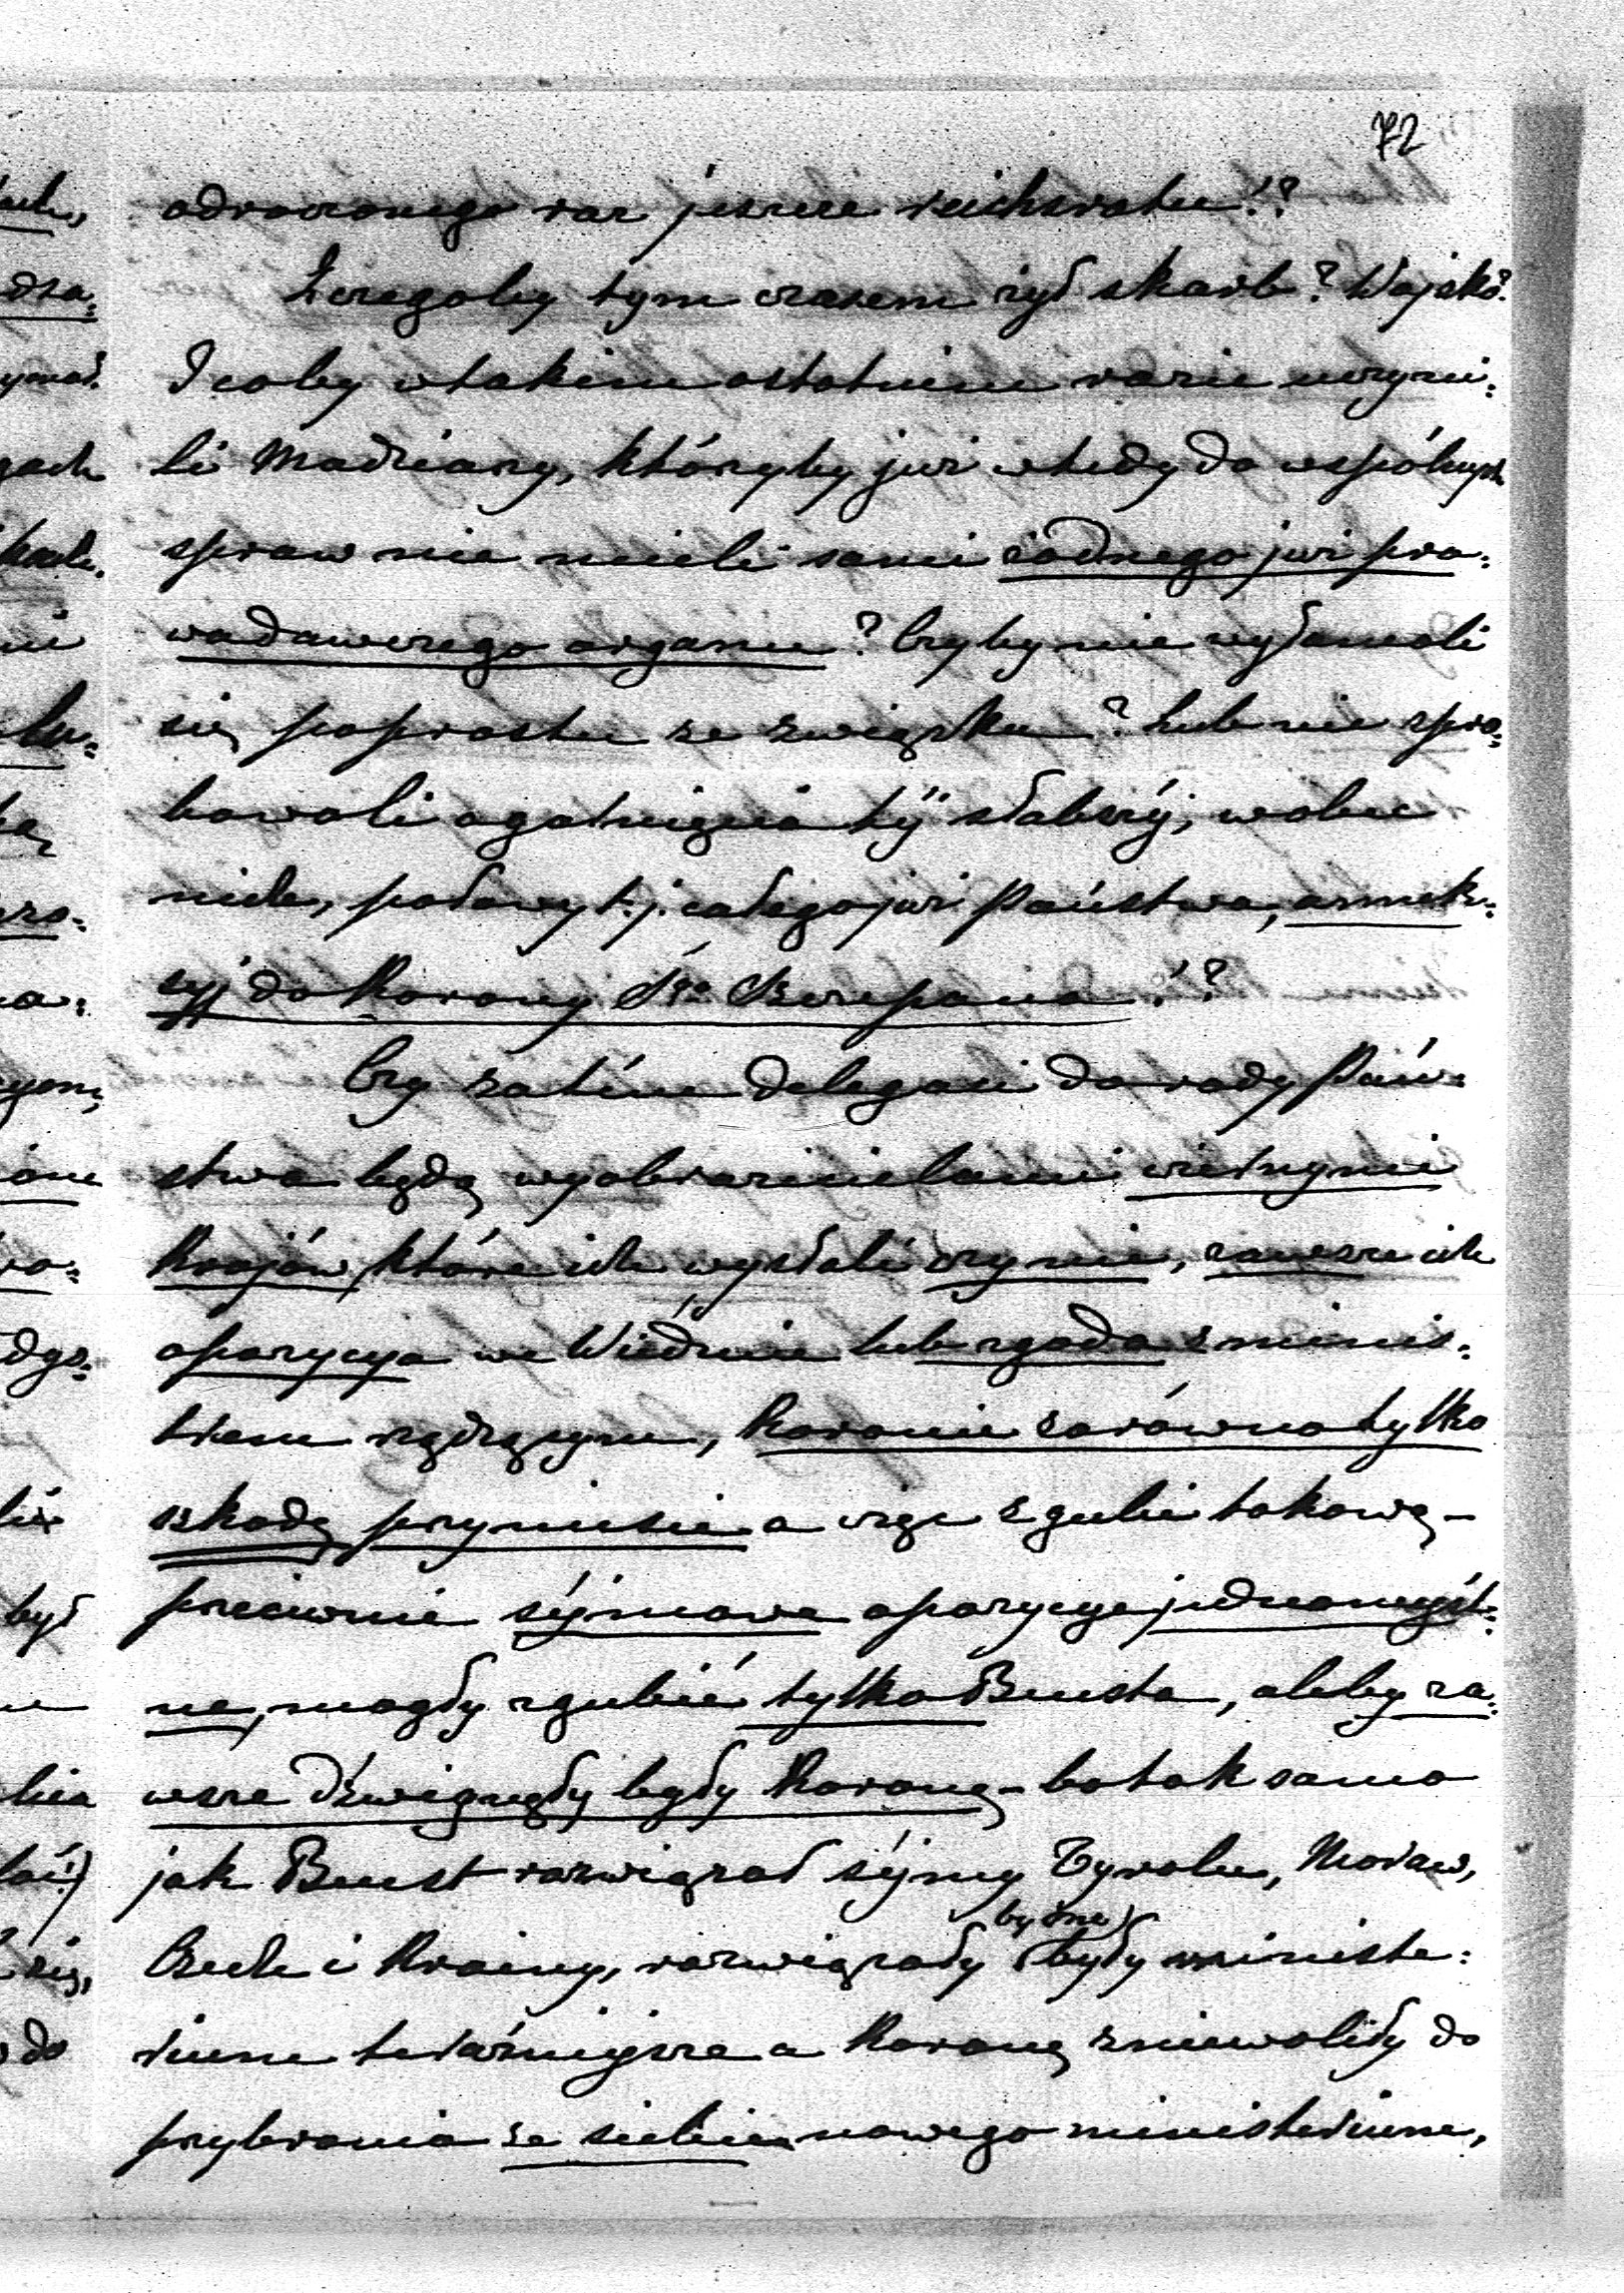 72
odroczonego raz jeszcze reichsratu!?
Z czegoby tym czasem żył skarb? Wojsko?
I coby w takim ostatnim razie uczyni:
li Madziary, któryby już wtedy do wspólnych
spraw nie mieli sami żadnego już pra:
wodawczego organu? Czyby nie wyłamali
się poprostu ze związku? Lub nie spró:
bowali ogarnięcia téj słabszéj, wobec
nich, połowy t.j. całego już Państwa, annek:
syj do Korony Sgo Szczepana!?
Czy zatém delegaci do rady Pań:
stwa będą wyobrazicielami wiernymi
Krajów, które ich wysłali czy nie, zawsze ich
opozycya we Wiédniu lub zgoda z minis:
trem rządzącym, Koronie zarówno tylko
szkodę przyniesie a więc zgubi takową -
przeciwnie séjmowe opozycye jednomyśl:
ne, mogły zgubić tylko Beusta, aleby za:
wsze dźwignęły były Koronę - bo tak samo
jak Beust rozwiązał séjmy Tyrolu, Moraw,
Czech i Krainy, rozwiązały były ministe:
by one
rium teraźniejsze a Koronę zniewoliły do
przybrania ze siebie nowego ministerium,